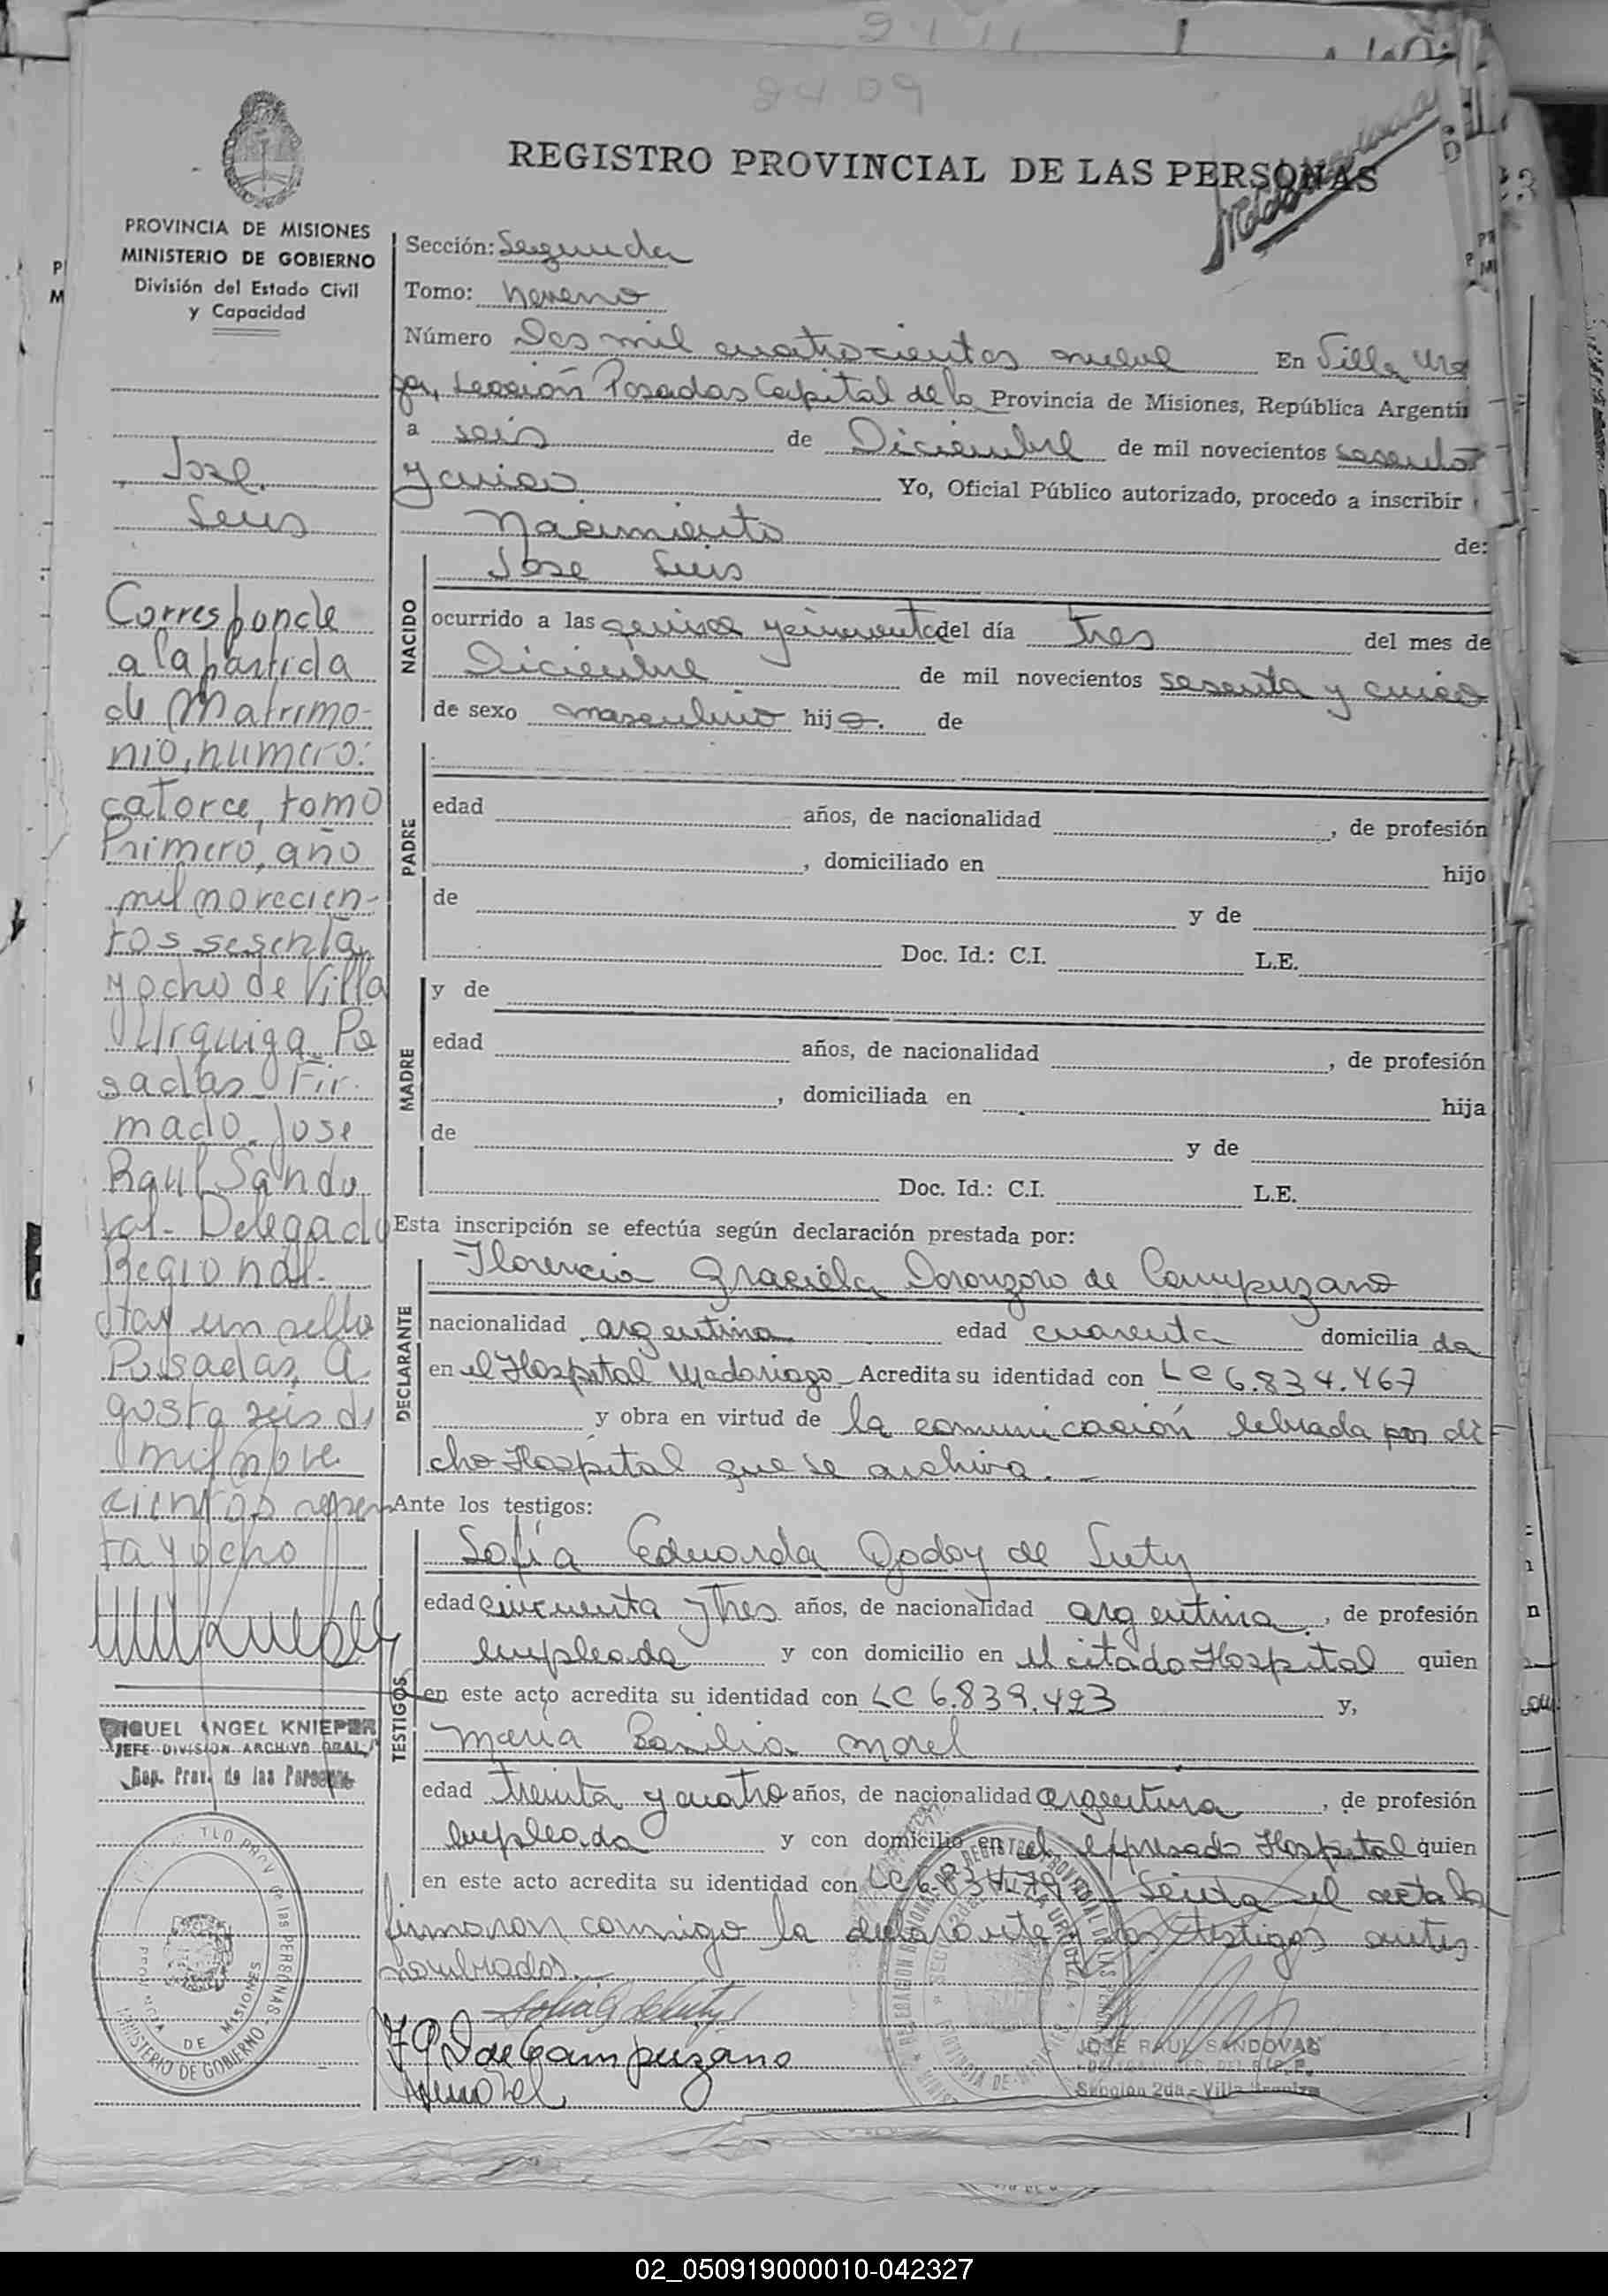 2409
REGISTRO PROVINCIAL DE LAS PERSONAS
PROVINCIA DE MISIONES
MINISTERIO DE GOBIERNO
División del Estado Civil
y Capacidad
Jose
Luis
Corresponde
a la partida
de Matrimo-
nio, numero:
catorce, tomo
Primero, año
mil novecien-
tos sesenta
y ocho de Villa
Urquiga. Po
sadas. Fir-
mado. Jose
Raul Sando
val - Delegado
Regional.
Hay un sello
Posadas, A
gosto seis de
mil nove
cientos
ta y ocho
MIGUEL ANGEL KNIEPER
JEFE DIVISION ARCHIVO GRAL.
Rep. Prov. de las Personas
PROV. de las PERSONAS
PROVINCIA DE MISIONES
MINISTERIO DE GOBIERNO
Sección: Segunda
Tomo: Noveno
Número Dos mil cuatrocientos nueve En Villa Urq
Sección Posadas Capital de la Provincia de Misiones, República Argenti
a seis de Diciembre de mil novecientos sesenta
y cinco Yo, Oficial Público autorizado, procedo a inscribir
Nacimiento de:
NACIDO
Jose Luis
ocurrido a las quince y cincuenta del día tres del mes de
Diciembre de mil novecientos sesenta y cinco
de sexo masculino hijo. de
PADRE
edad años, de nacionalidad , de profesión
, domiciliado en hijo
de y de
Doc. Id.: C.I. L.E.
MADRE
y de
edad años, de nacionalidad , de profesión
, domiciliada en hija
de y de
Doc. Id.: C.I. L.E.
Esta inscripción se efectúa según declaración prestada por:
DECLARANTE
Florencia Graciela Doronzoro de Campuzano
nacionalidad argentina edad cuarenta domicilia da
en el Hospital Madariaga - Acredita su identidad con LC 6.834.467
y obra en virtud de la comunicación librada por di-
cho Hospital que se archiva.-
Ante los testigos:
TESTIGOS
Sofía Eduarda Godoy de Luty
edad cincuenta y tres años, de nacionalidad argentina, de profesión
empleada y con domicilio en el citado Hospital quien
en este acto acredita su identidad con LC 6.839.493 y,
Maria Basilia Morel
edad treinta y cuatro años, de nacionalidad argentina, de profesión
empleada y con domicilio en el expresado Hospital quien
en este acto acredita su identidad con LC Leida el acta la
firmaron conmigo la declarante y los testigos antes
nombrados.-
F G D de Campuzano
JOSE RAUL SANDOVAL
Sección 2da - Villa Urquiza
02_050919000010-042327